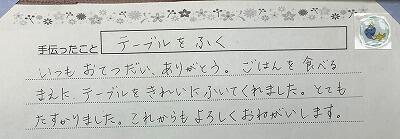 手伝ったこと テーブルをふく
いつもおてつだい、ありがとう。ごはんを食べる
まえに、テーブルをきれいにふいてくれました。とても
たすかりました。これからもよろしくおねがいします。